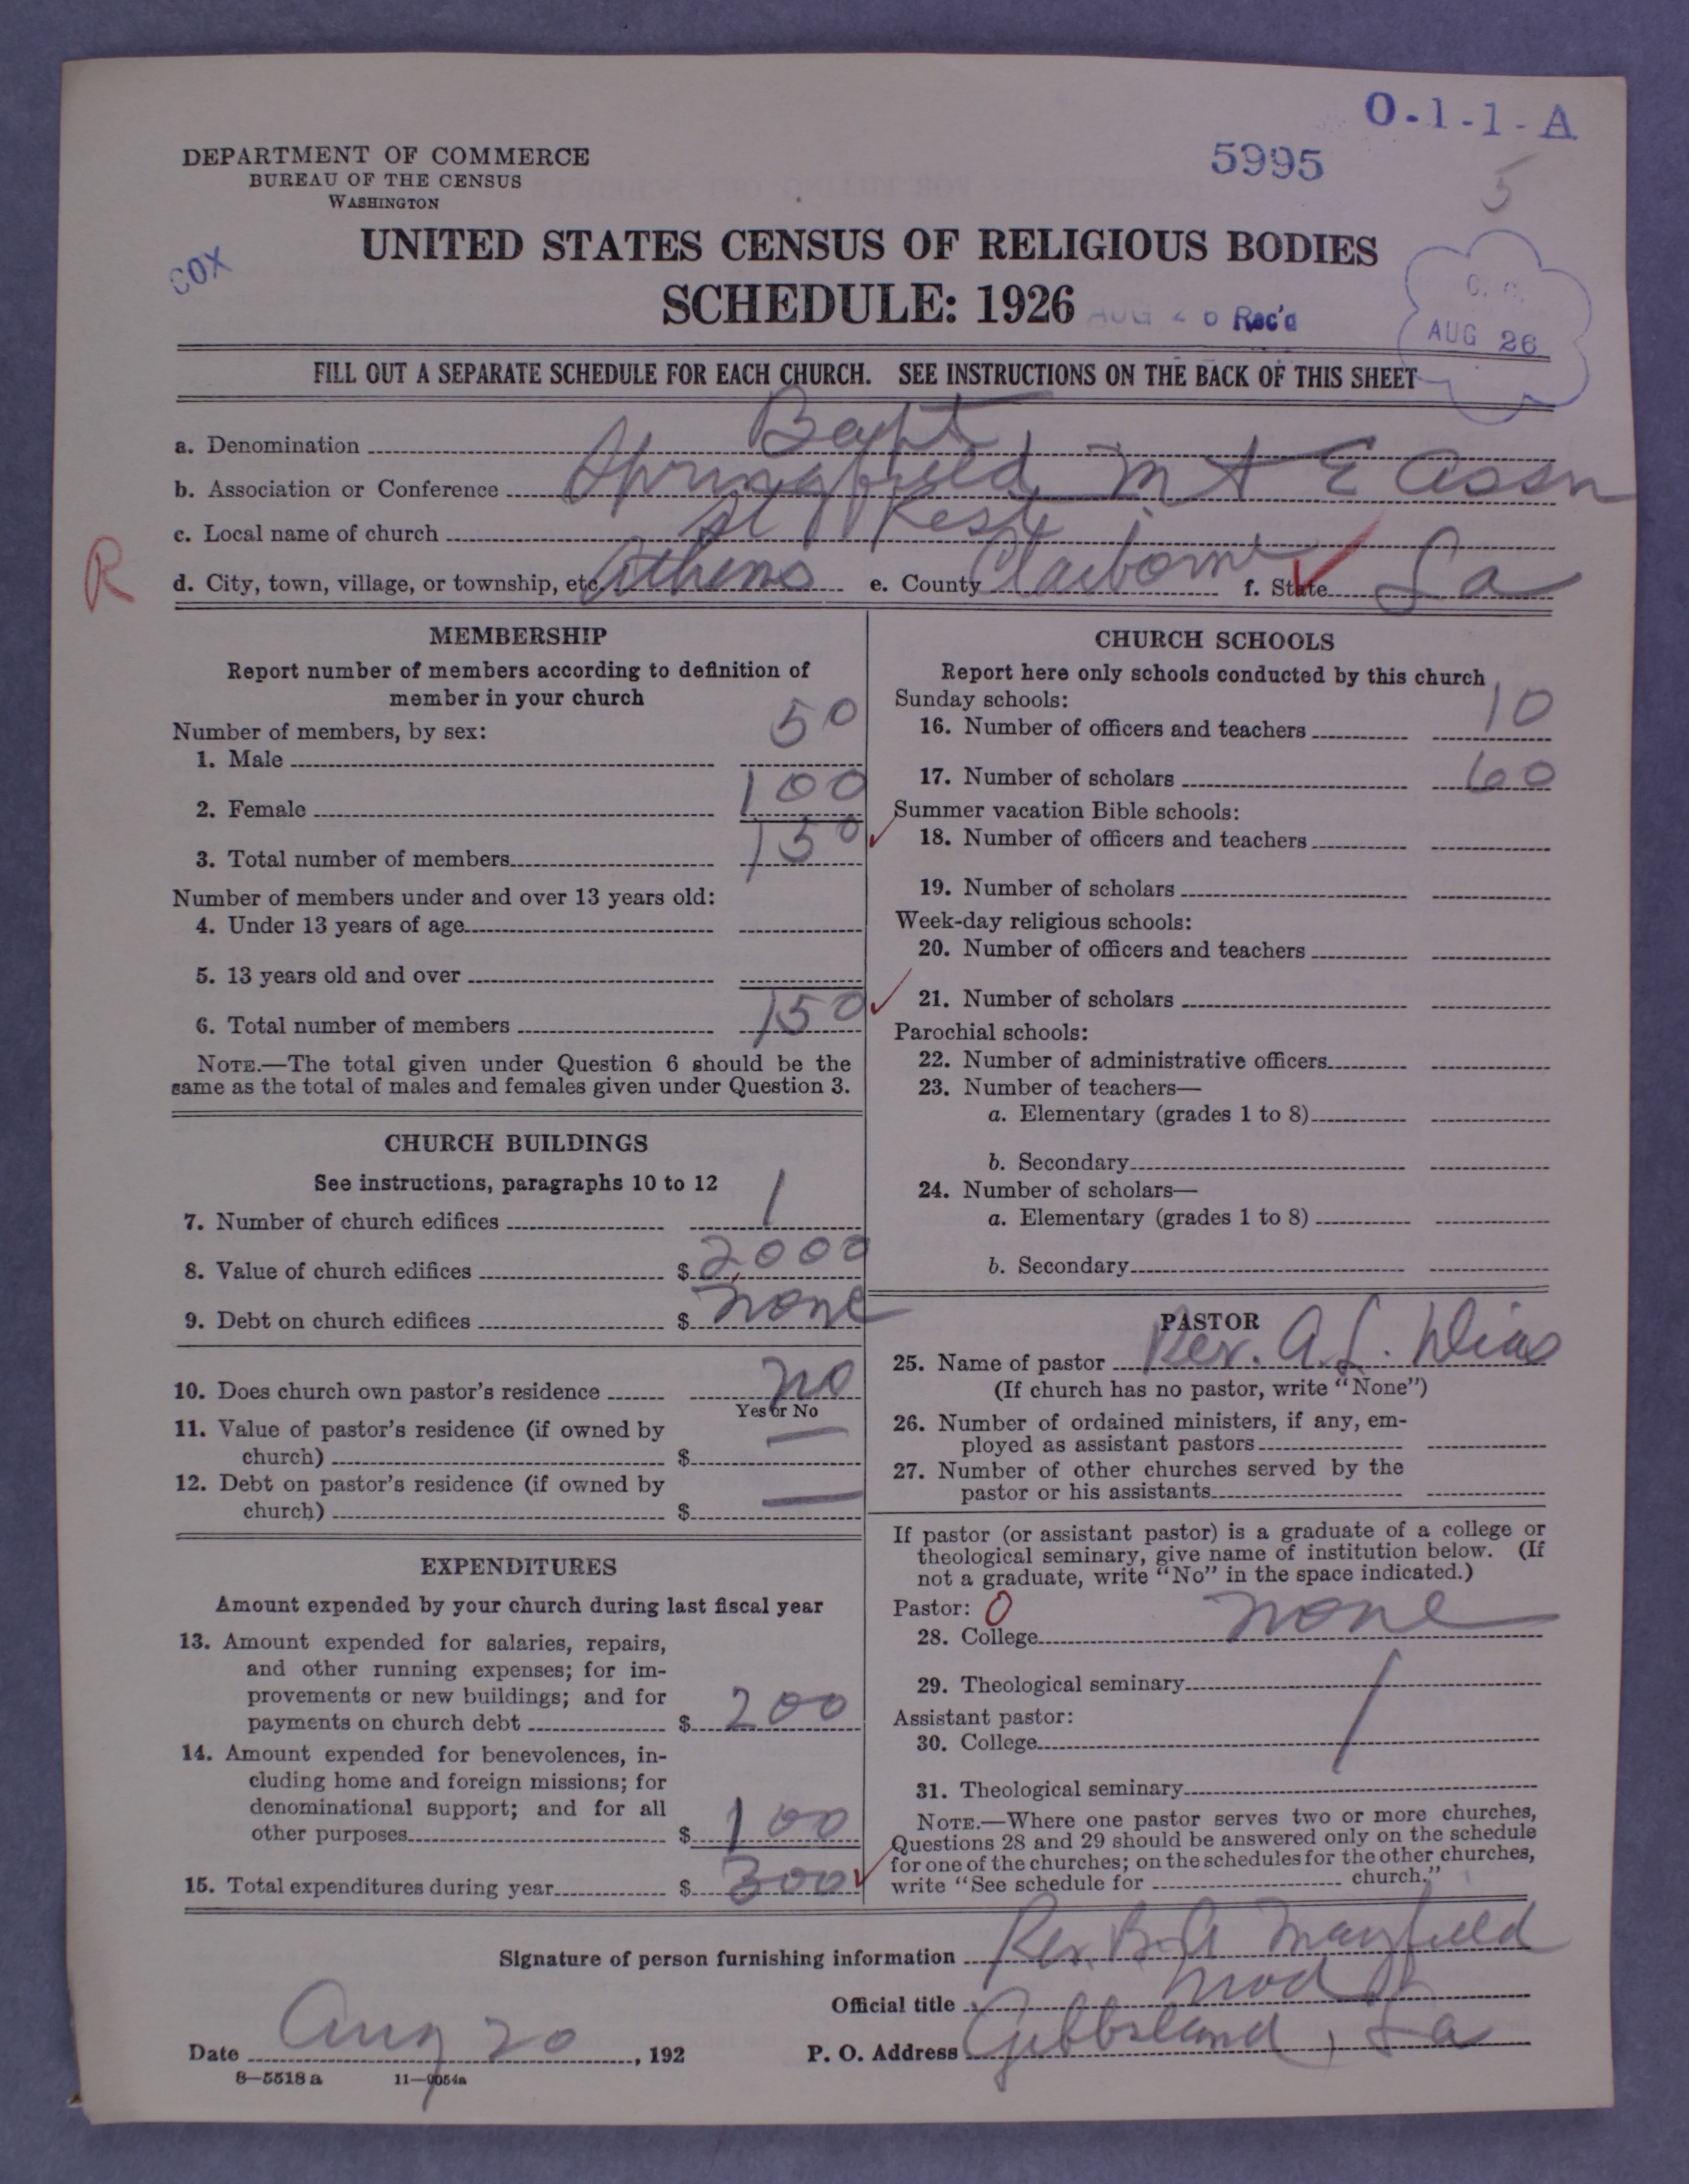 O-1-1-A
5995
5
DEPARTMENT OF COMMERCE
BUREAU OF THE CENSUS
WASHINGTON
COX
UNITED STATES CENSUS OF RELIGIOUS BODIES
SCHEDULE: 1926
AUG 26 Rec'd
AUG 26
FILL OUT A SEPARATE SCHEDULE FOR EACH CHURCH. SEE INSTRUCTIONS ON THE BACK OF THIS SHEET
a. Denomination Bapt
b. Association or Conference Springfield M & E Assn
c. Local name of church St Rest
R
d. City, town, village, or township, etc. Athens e. County Claiborne f. State La
MEMBERSHIP
Report number of members according to definition of
member in your church
Number of members, by sex:
1. Male 50
2. Female 100
3. Total number of members 150
Number of members under and over 13 years old:
4. Under 13 years of age
5. 13 years old and over
6. Total number of members 150
NOTE.—The total given under Question 6 should be the
same as the total of males and females given under Question 3.
CHURCH BUILDINGS
See instructions, paragraphs 10 to 12
7. Number of church edifices 1
8. Value of church edifices $ 2000
9. Debt on church edifices $ none
10. Does church own pastor's residence no
Yes or No
11. Value of pastor's residence (if owned by
church) $ —
12. Debt on pastor's residence (if owned by
church) $ —
EXPENDITURES
Amount expended by your church during last fiscal year
13. Amount expended for salaries, repairs,
and other running expenses; for im-
provements or new buildings; and for
payments on church debt $ 200
14. Amount expended for benevolences, in-
cluding home and foreign missions; for
denominational support; and for all
other purposes $ 100
15. Total expenditures during year $ 300
CHURCH SCHOOLS
Report here only schools conducted by this church
Sunday schools:
16. Number of officers and teachers 10
17. Number of scholars 60
Summer vacation Bible schools:
18. Number of officers and teachers
19. Number of scholars
Week-day religious schools:
20. Number of officers and teachers
21. Number of scholars
Parochial schools:
22. Number of administrative officers
23. Number of teachers—
a. Elementary (grades 1 to 8)
b. Secondary
24. Number of scholars—
a. Elementary (grades 1 to 8)
b. Secondary
PASTOR
25. Name of pastor Rev. A. L.
(If church has no pastor, write "None")
26. Number of ordained ministers, if any, em-
ployed as assistant pastors
27. Number of other churches served by the
pastor or his assistants
If pastor (or assistant pastor) is a graduate of a college or
theological seminary, give name of institution below. (If
not a graduate, write "No" in the space indicated.)
Pastor: 0
28. College none
29. Theological seminary
Assistant pastor:
30. College
31. Theological seminary
NOTE.—Where one pastor serves two or more churches,
Questions 28 and 29 should be answered only on the schedule
for one of the churches; on the schedules for the other churches,
write "See schedule for church."
Signature of person furnishing information Rev. B. A. Mayfield
Official title Mod
Date Aug 20, 192 P. O. Address Gibbsland, La
8—5518 a 11—9054a